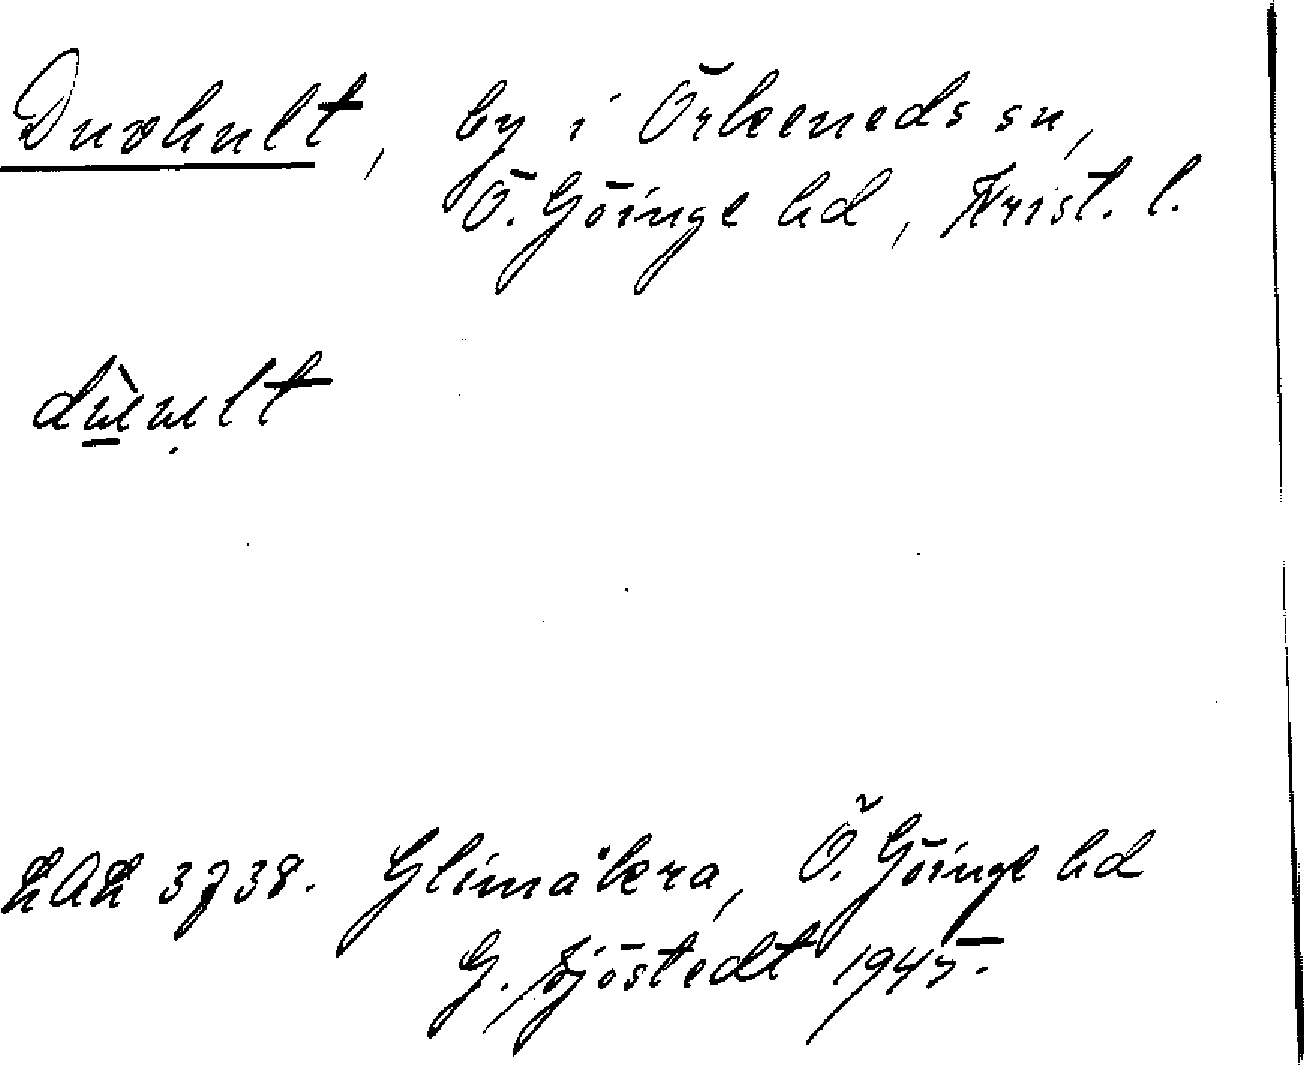 Duvhult, by i Örkeneds sn,
Ö. Göinge hd, Krist. l.
LAL 3738. Glimåkra, Ö. Göinge hd
G. Sjöstedt 1945.